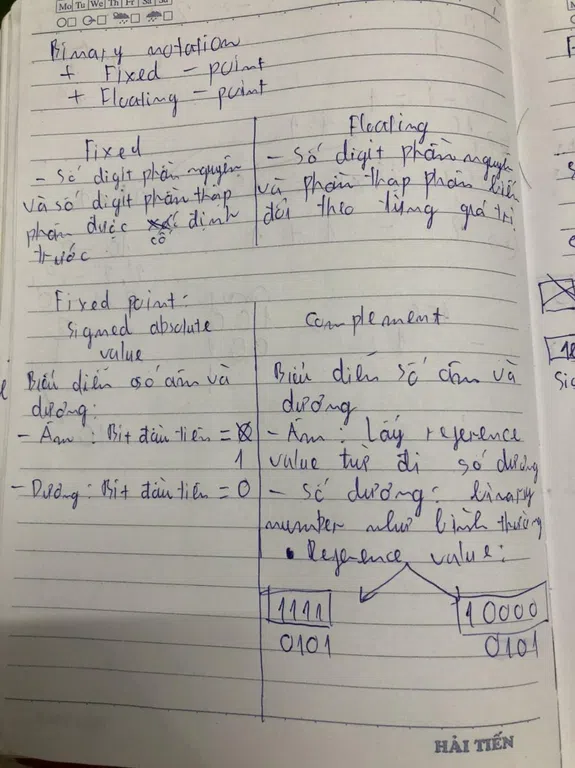 Mo Tu We Th Fr Sa Su
Binary notation
+ Fixed - point
+ Floating - point
Fixed
- Số digit phần nguyên
và số digit phần thập
phân được cố định
trước
Floating
- Số digit phần nguyên
và phần thập phân biến
đổi theo từng giá trị
Fixed point:
signed absolute
value
Biểu diễn số âm và
dương:
- Âm : Bit đầu tiên =
1
- Dương: Bit đầu tiên = 0
Complement
Biểu diễn số âm và
dương
- Âm : Lấy reference
value trừ đi số dương
- Số dương: binary
number như bình thường
• Reference value:
1111
0101
10000
0101
HẢI TIẾN
18